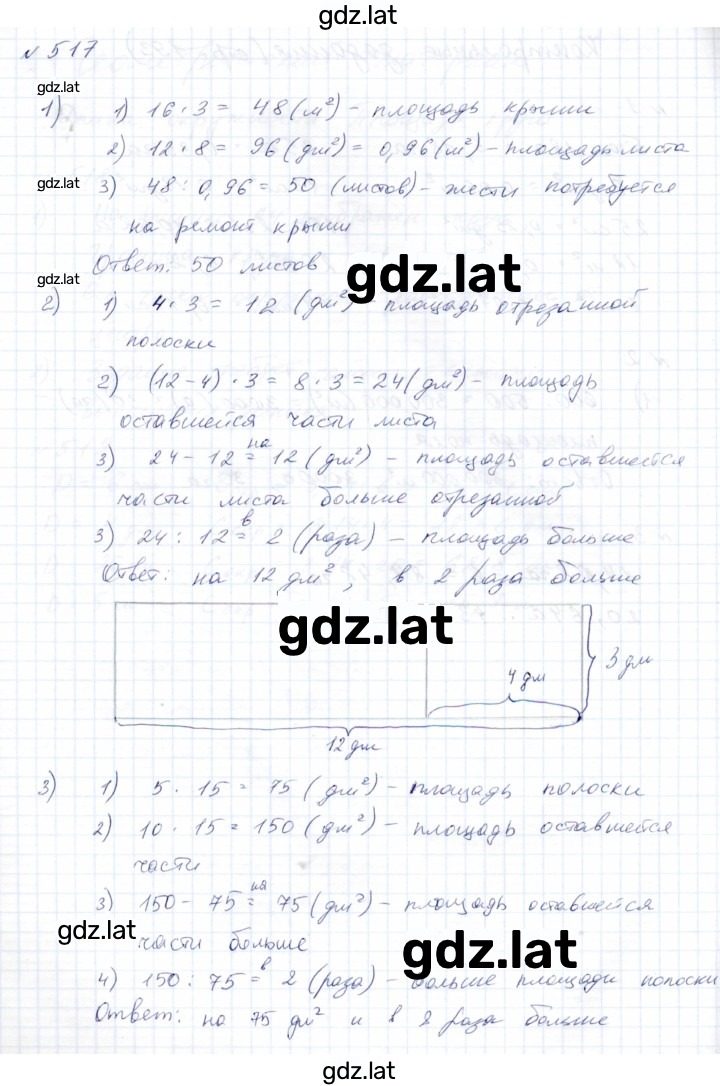 gdz.lat
№ 517
gdz.lat
1) 1) 16 · 3 = 48 (м²) - площадь крыши
gdz.lat
2) 12 · 8 = 96 (дм²) = 0,96 (м²) - площадь листа
gdz.lat
3) 48 : 0,96 = 50 (листов) - жести потребуется
на ремонт крыши
Ответ: 50 листов
gdz.lat
gdz.lat
2) 1) 4 · 3 = 12 (дм²) площадь отрезанной
полоски
2) (12 - 4) · 3 = 8 · 3 = 24 (дм²) - площадь
оставшейся части листа
3) 24 - 12 = на 12 (дм²) - площадь оставшейся
части листа больше отрезанной
3) 24 : 12 = в 2 (раза) - площадь больше
Ответ: на 12 дм², в 2 раза больше
gdz.lat
3 дм
4 дм
12 дм
3) 1) 5 · 15 = 75 (дм²) - площадь полоски
2) 10 · 15 = 150 (дм²) - площадь оставшейся
части
3) 150 - 75 = на 75 (дм²) - площадь оставшейся
gdz.lat
части больше
gdz.lat
4) 150 : 75 = в 2 (раза) - больше площади полоски
Ответ: на 75 дм² и в 2 раза больше
gdz.lat